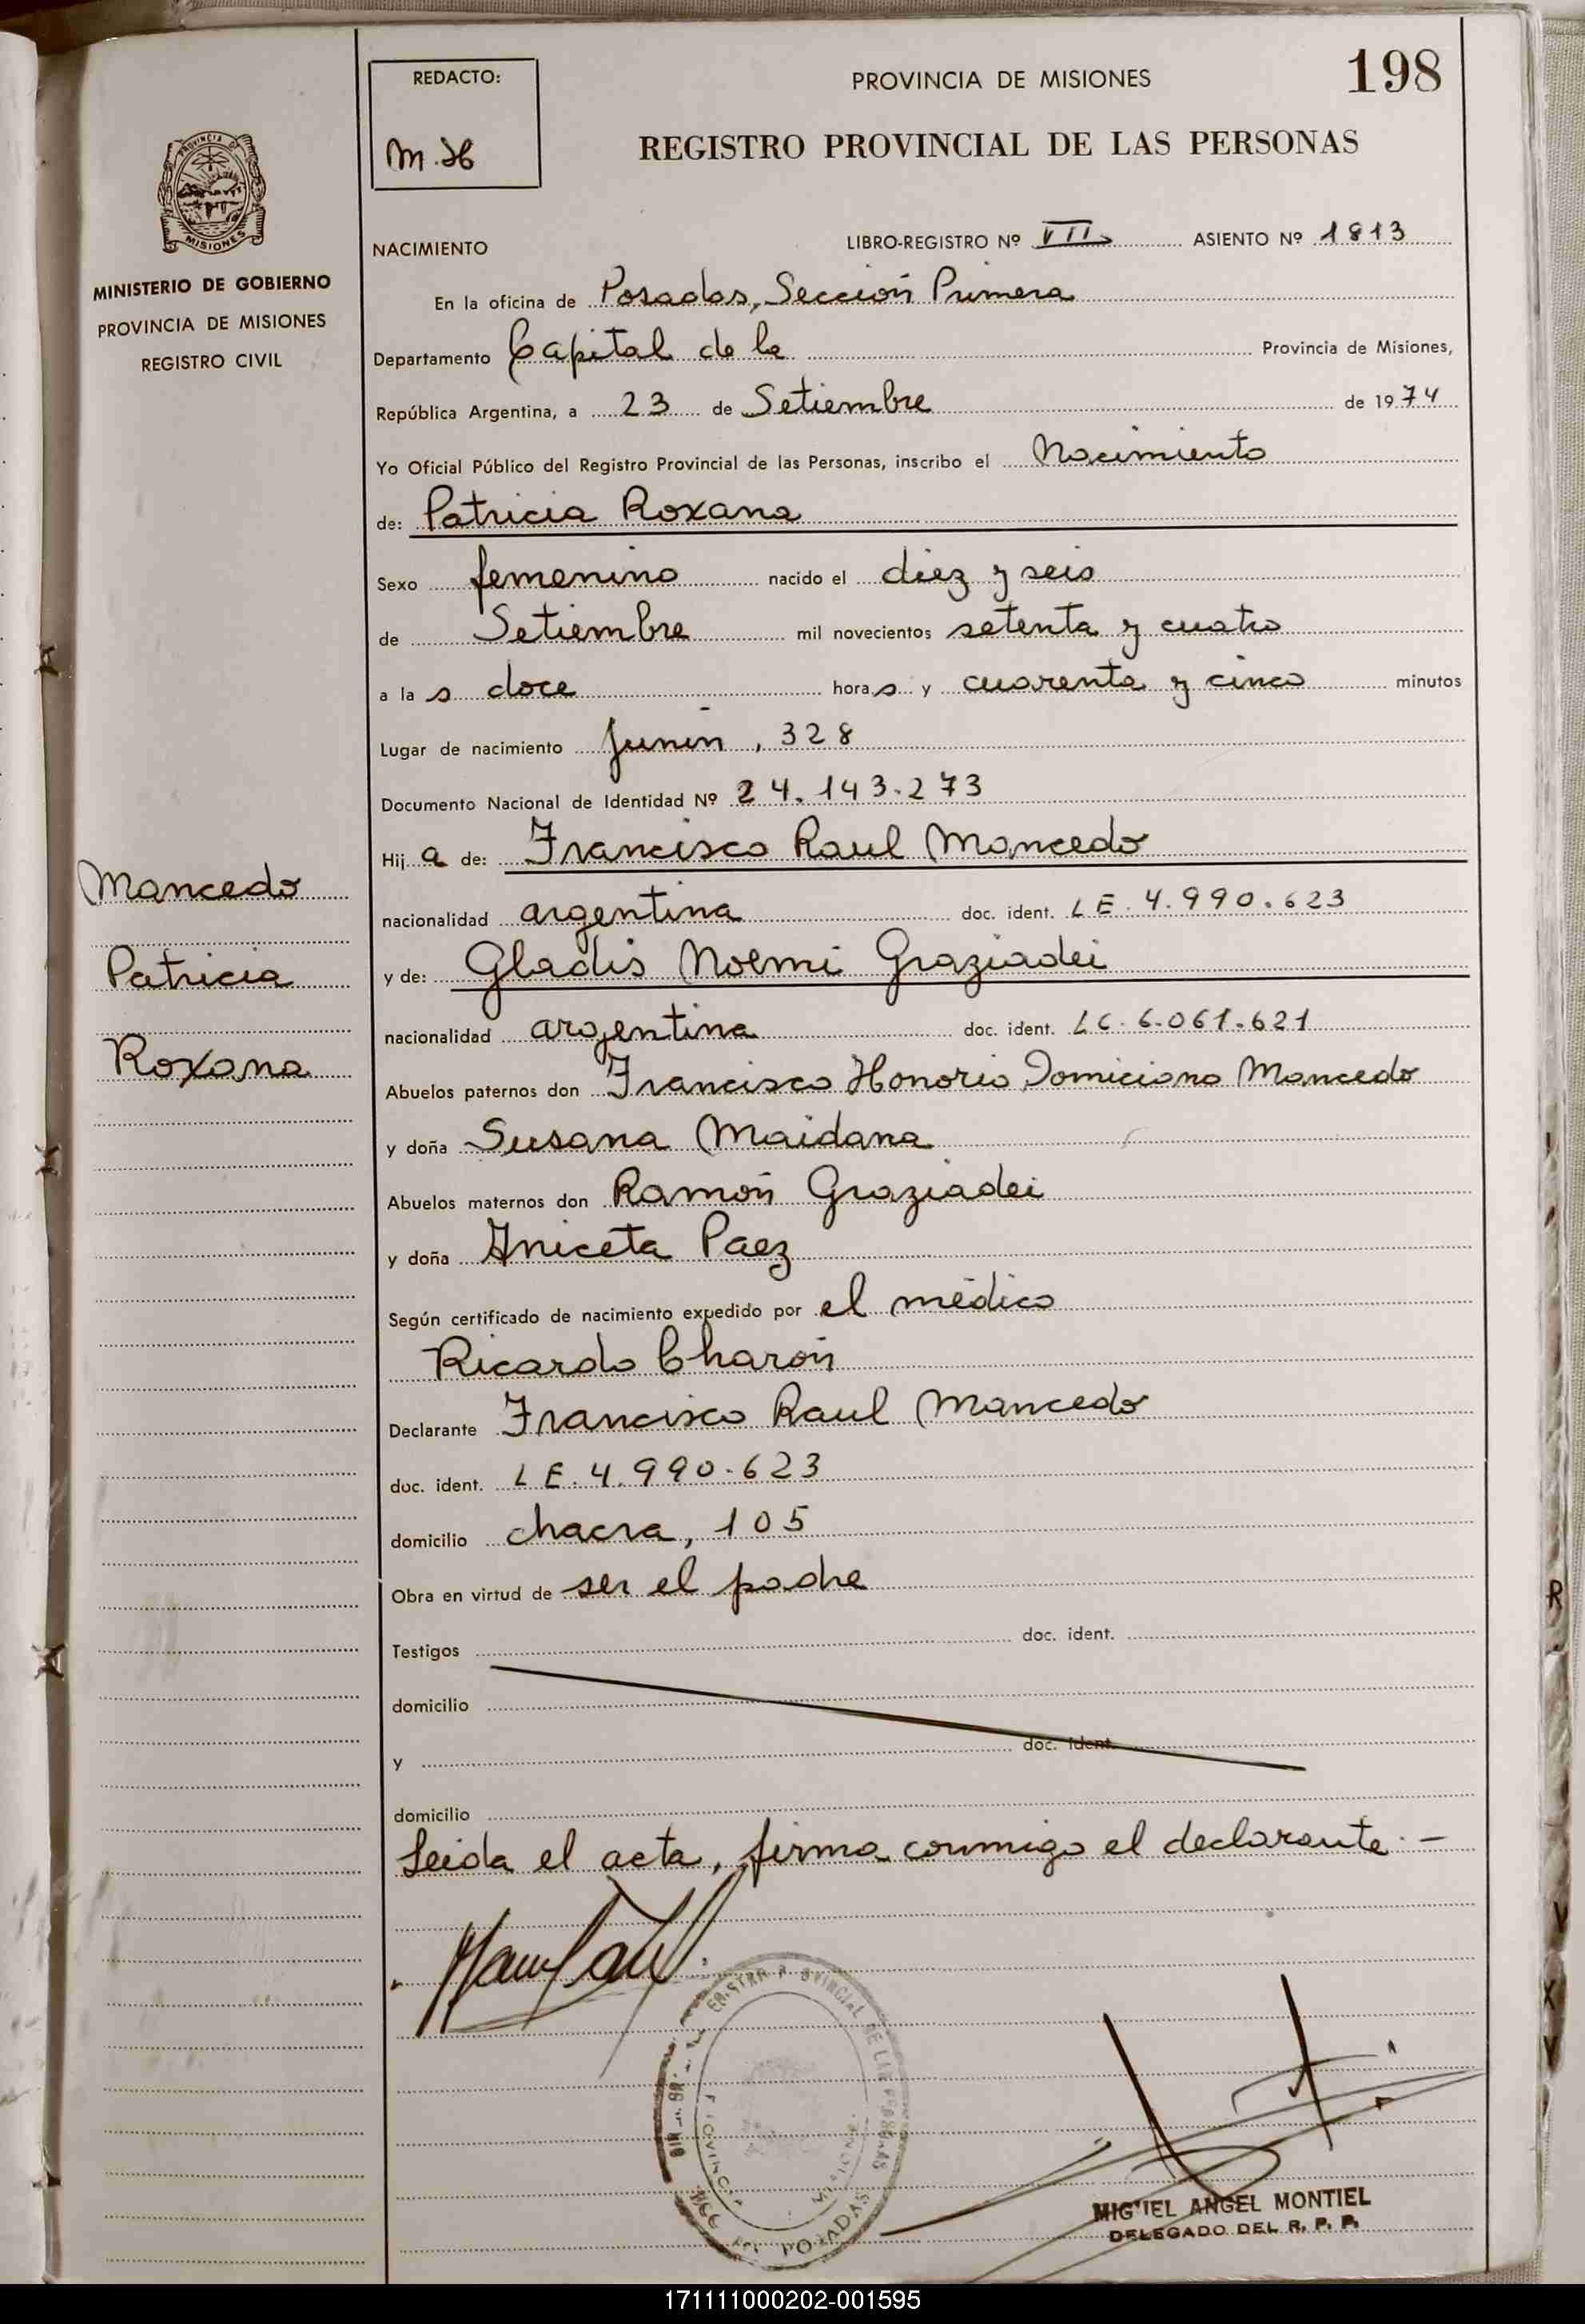 198
REDACTO:
M.H
PROVINCIA DE MISIONES
REGISTRO PROVINCIAL DE LAS PERSONAS
PROVINCIA DE
MISIONES
MINISTERIO DE GOBIERNO
PROVINCIA DE MISIONES
REGISTRO CIVIL
NACIMIENTO LIBRO-REGISTRO Nº VII ASIENTO Nº 1813
En la oficina de Posadas, Sección Primera
Departamento Capital de la Provincia de Misiones,
República Argentina, a 23 de Setiembre de 1974
Yo Oficial Público del Registro Provincial de las Personas, inscribo el Nacimiento
de: Patricia Roxana
Sexo femenino nacido el diez y seis
de Setiembre mil novecientos setenta y cuatro
a la s doce hora s y cuarenta y cinco minutos
Lugar de nacimiento Junín, 328
Documento Nacional de Identidad Nº 24.143.273
Hij a de: Francisco Raul Mancedo
nacionalidad argentina doc. ident. LE. 4.990.623
y de: Gladis Noemi Graziadei
nacionalidad argentina doc. ident. LC. 6.061.621
Abuelos paternos don Francisco Honorio Domiciano Mancedo
y doña Susana Maidana
Abuelos maternos don Ramón Graziadei
y doña Aniceta Paez
Según certificado de nacimiento expedido por el médico
Ricardo Charón
Declarante Francisco Raul Mancedo
doc. ident. LE. 4.990.623
domicilio chacra, 105
Obra en virtud de ser el padre
Testigos doc. ident.
domicilio
y doc. ident.
domicilio
Leida el acta, firma conmigo el declarante.-
Mancedo
Patricia
Roxana
POSADAS
MIGUEL ANGEL MONTIEL
DELEGADO DEL R. P. P.
171111000202-001595